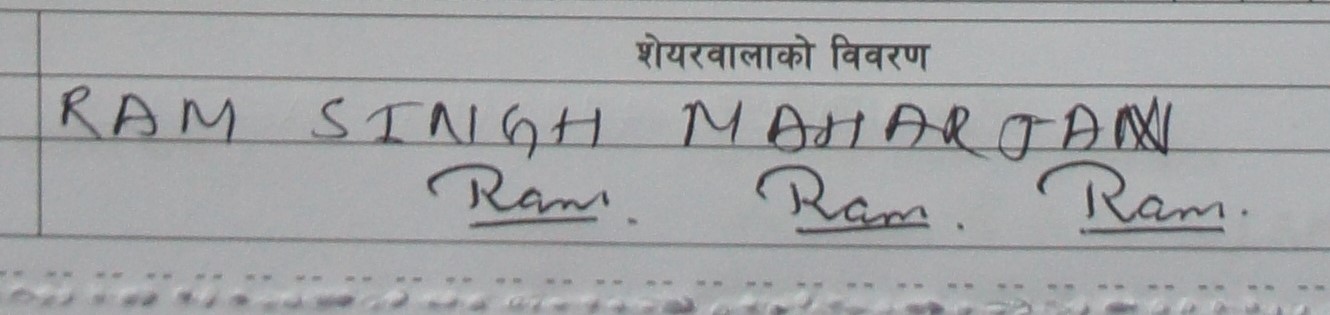 शेयरवालाको विवरण
RAM SINGH MAHARJAN
Ram. Ram. Ram.